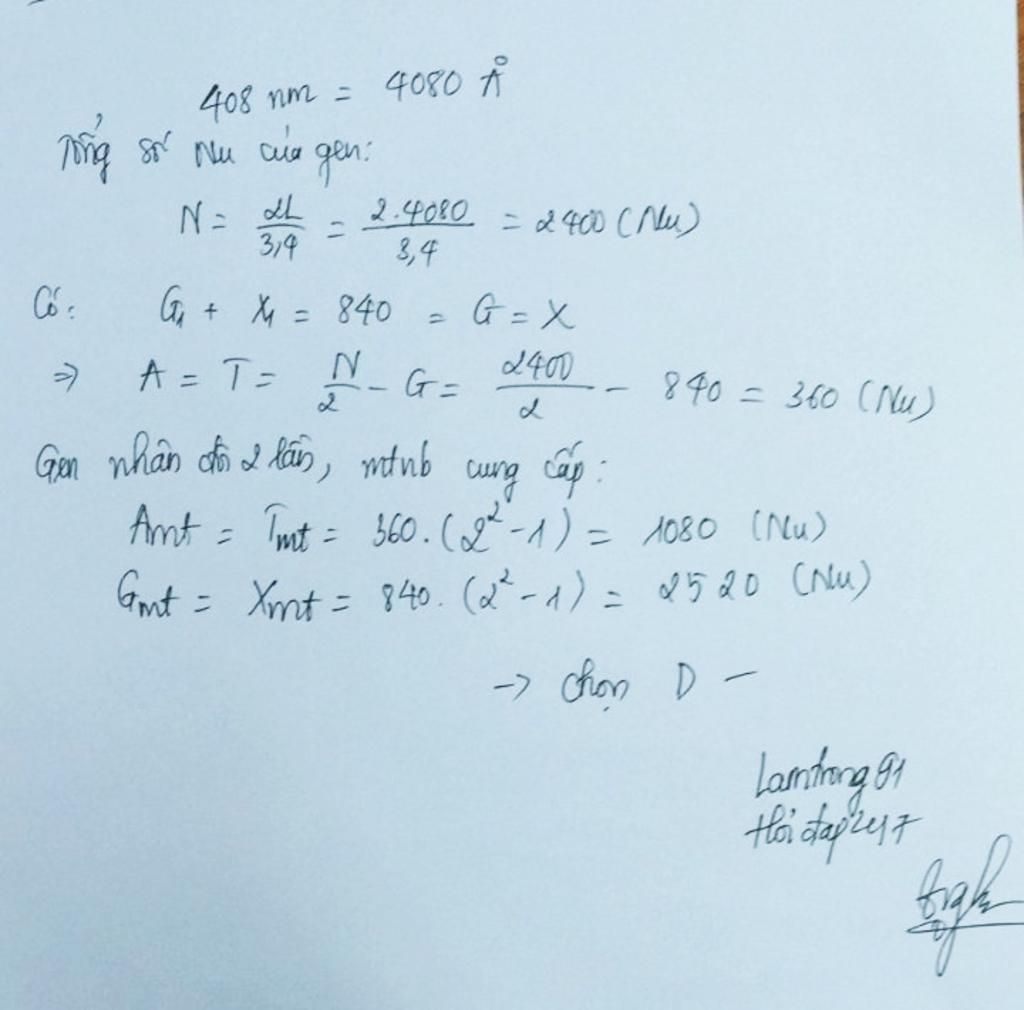 408 nm = 4080 Å
Tổng số Nu của gen:
N = 2L/3,4 = 2.4080/3,4 = 2400 (Nu)
Có: G1 + X1 = 840 = G = X
=> A = T = N/2 - G = 2400/2 - 840 = 360 (Nu)
Gen nhân đôi 2 lần, mtnb cung cấp:
Amt = Tmt = 360.(2² - 1) = 1080 (Nu)
Gmt = Xmt = 840.(2² - 1) = 2520 (Nu)
-> chọn D -
Lamtrong91
Hỏi đáp 247